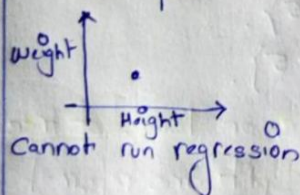 Weight
Height
Cannot run regression